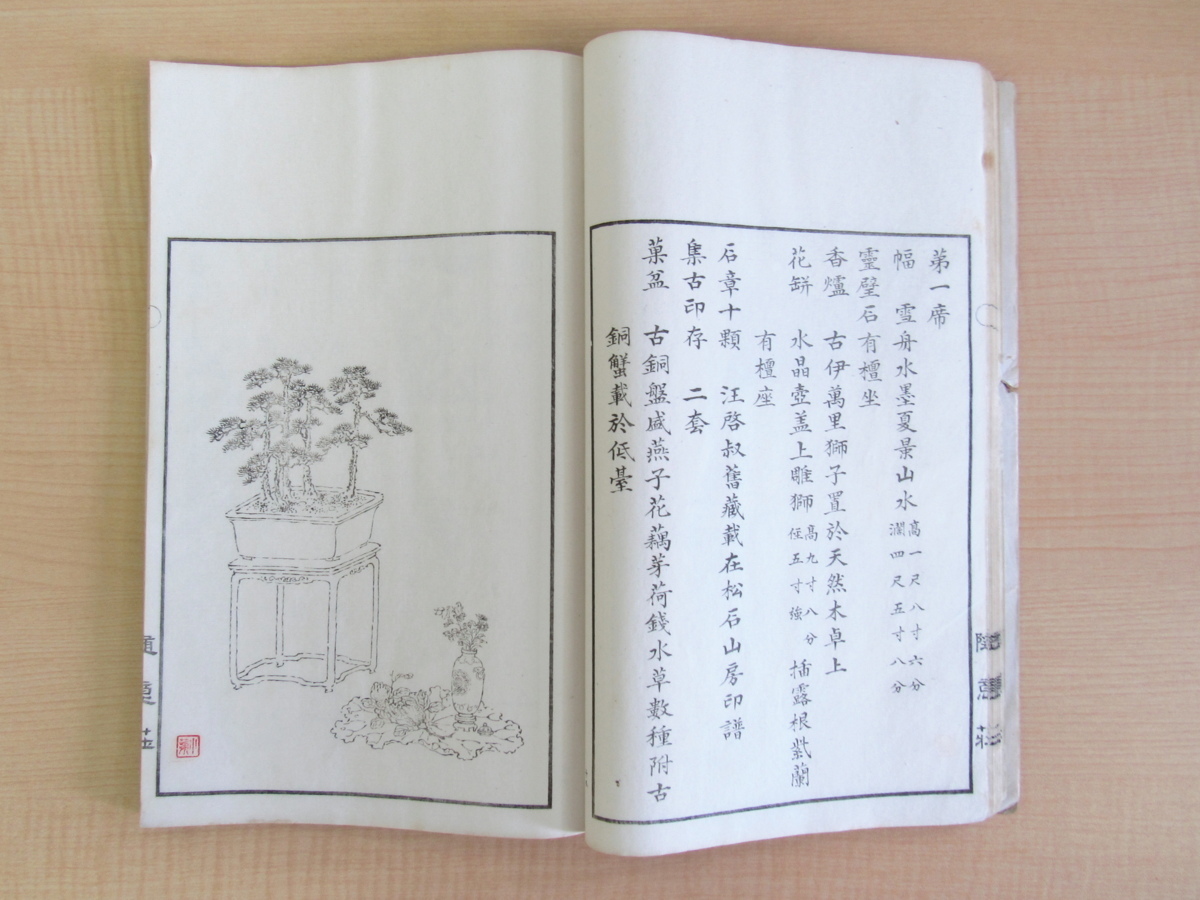 第一席
幅　雪舟水墨夏景山水高一尺八寸六分濶四尺五寸八分
靈壁石有檀坐
香爐　古伊萬里獅子置於天然木卓上
花缾　水晶壺盖上雕獅高九寸八分徑五寸強插露根紫蘭
有檀座
石章十顆　汪啓叔舊藏載在松石山房印譜
集古印存　二套
菓盆　古銅盤盛燕子花藕芽荷錢水草數種附古
銅蟹載於低臺